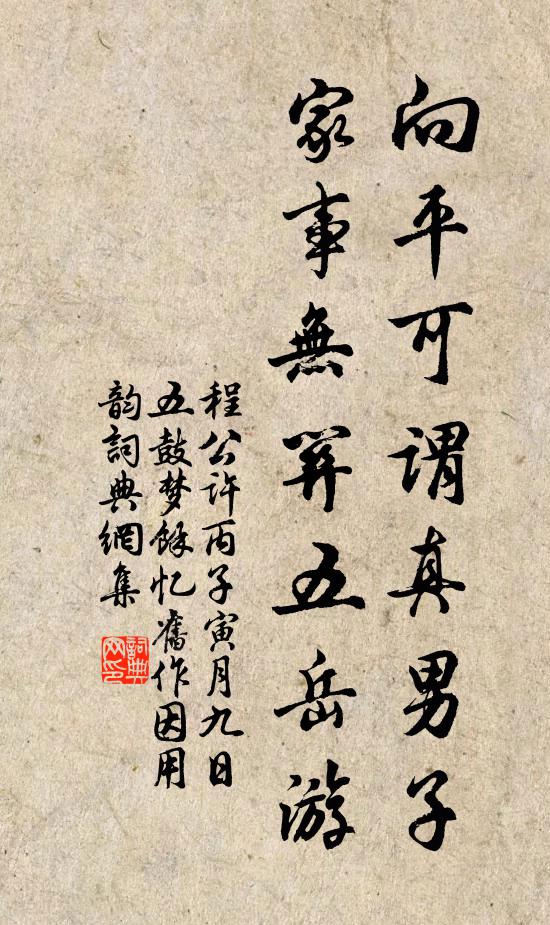 向平可谓真男子
家事無關五岳游
程公许丙子寅月九日
五鼓梦馀忆舊作因用
韵詞典網集
詞典
网印